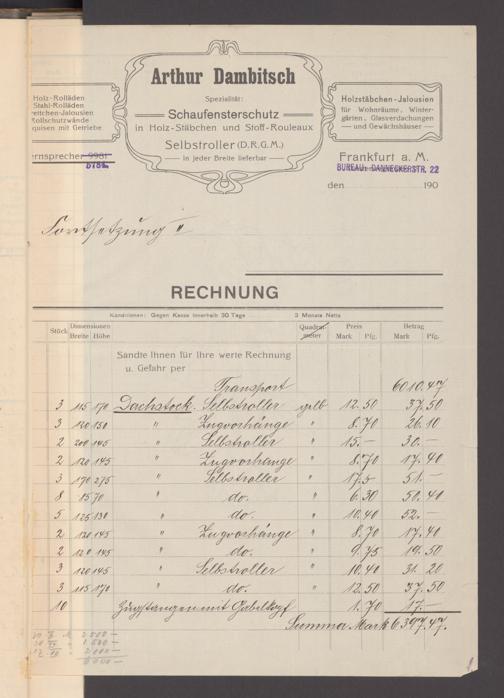 Arthur Dambitsch
Spezialität:
Schaufensterschutz
in Holz-Stäbchen und Stoff-Rouleaux
Selbstroller (D.R.G.M.)
in jeder Breite lieferbar
Holz-Rolläden
Stahl-Rolläden
Rollschutzwände
mit Getriebe
Holzstäbchen-Jalousien
für Wohnräume, Winter-
gärten, Glasverdachungen
und Gewächshäuser
ernsprecher 9981
Frankfurt a. M.
BUREAU: DANNECKERSTR. 22
den 190
Fortsetzung "
RECHNUNG
Konditionen: Gegen Kasse innerhalb 30 Tage 3 Monate Netto
Stück Dimensionen Quadrat- Preis Betrag
Breite Höhe meter Mark Pfg. Mark Pfg.
Sandte Ihnen für Ihre werte Rechnung
u. Gefahr per
Transport 6010.47
3 115 170 Dachstock. Selbstroller gelb 12.50 37.50
3 120 150 " Zugvorhänge " 8.70 26.10
2 200 145 " Selbstroller " 15.— 30.—
2 120 145 " Zugvorhänge " 8.70 17.40
3 170 275 " Selbstroller " 17.— 51.—
8 85 70 " do. " 6.30 50.40
5 125 130 " do. " 10.40 52.—
2 120 145 " Zugvorhänge " 8.70 17.40
2 120 145 " do. " 9.75 19.50
3 120 145 " Selbstroller " 10.40 31.20
3 115 170 " do. " 12.50 37.50
10 Zugstangen mit Gabelkopf 1.70 17.—
Summa Mark 6397.47.